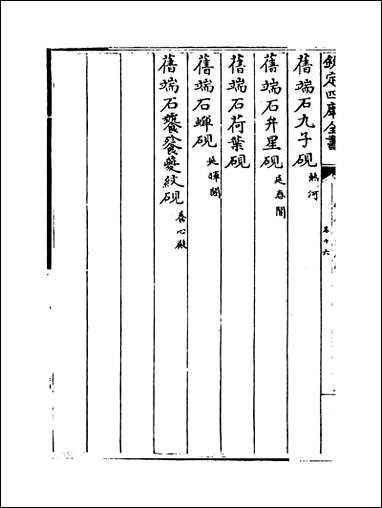 欽定四庫全書
卷十六
舊端石九子硯 熱河
舊端石井星硯 延春閣
舊端石荷葉硯
舊端石蟬硯 延暉閣
舊端石饕餮夔紋硯 養心殿